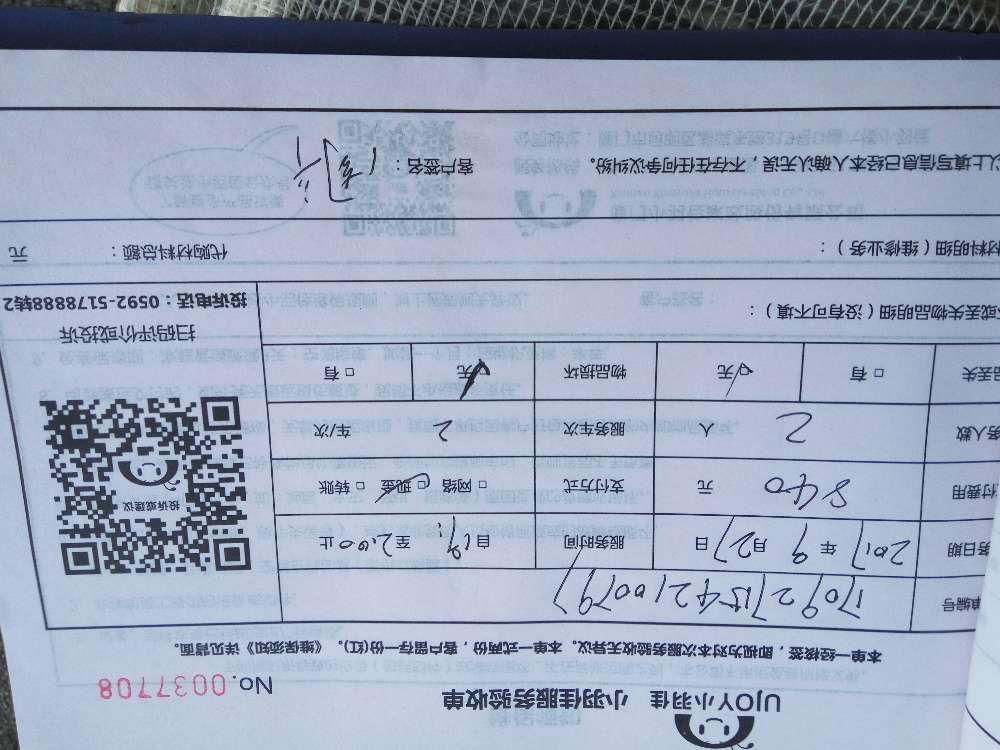 UJOY小羽佳 小羽佳服务验收单
No. 0037708
本单一经核签，即视为对本次服务验收无异议。本单一式两份，客户留存一份(红)。《维保须知》详见背面。
单编号 17092715421 00797
务日期 2017 年 9 月 27 日 服务时间 至 止
付费用 840 元 支付方式 □ 网络 □ 现金 □ 转账
务人数 2 人 服务车次 2 车/次
品丢失 □ 有 □ 无 物品损坏 □ 有 □ 无
或丢失物品明细（没有可不填）：
投诉或建议
扫码评价或投诉
投诉电话：0592-5178888转2
材料明细（维修业务）： 代购材料总额： 元
以上填写信息已经本人确认无误，不存在任何争议纠纷。 客户签名：